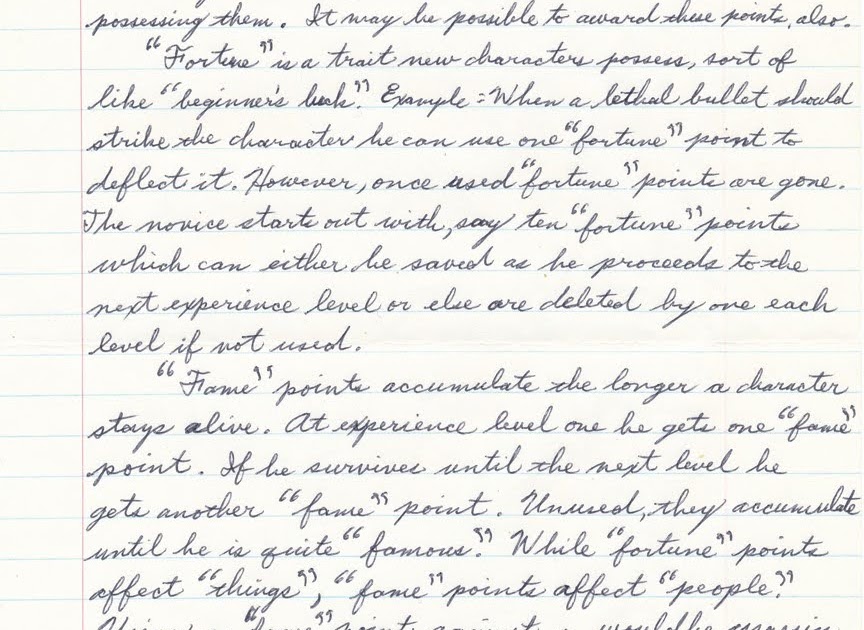 possessing them. It may be possible to award these points, also.
"Fortune" is a trait new characters possess, sort of
like "beginner's luck." Example: When a lethal bullet should
strike the character he can use one "fortune" point to
deflect it. However, once used "fortune" points are gone.
The novice starts out with, say ten "fortune" points
which can either be saved as he proceeds to the
next experience level or else are deleted by one each
level if not used.
"Fame" points accumulate the longer a character
stays alive. At experience level one he gets one "fame"
point. If he survives until the next level he
gets another "fame" point. Unused, they accumulate
until he is quite "famous." While "fortune" points
affect "things", "fame" points affect "people."
"fame" point against a would be assassin